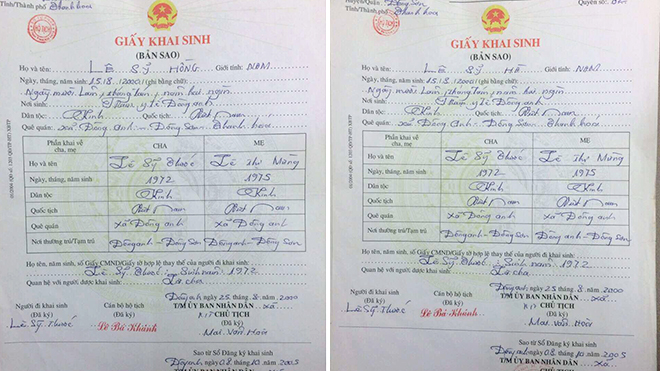 Tỉnh/Thành phố Thanh hoá
GIẤY KHAI SINH
(BẢN SAO)
Họ và tên: LÊ SỸ HỒNG Giới tính: NAM
Ngày, tháng, năm sinh: 15.8.2000 (ghi bằng chữ):
Ngày mười Lăm, tháng tám, năm hai ngìn
Nơi sinh: Trạm y tế Đông anh
Dân tộc: Kinh Quốc tịch: Việt Nam
Quê quán: xã Đông Anh - Đông Sơn - Thanh hoá
Phần khai về cha, mẹ CHA MẸ
Họ và tên Lê Sỹ Thước Lê Thị Mừng
Ngày, tháng, năm sinh 1972 1975
Dân tộc Kinh Kinh
Quốc tịch Việt Nam Việt Nam
Quê quán xã Đông anh xã Đông anh
Nơi thường trú/Tạm trú Đông anh - Đông Sơn Đông anh - Đông Sơn
Họ tên, năm sinh, số Giấy CMND/Giấy tờ hợp lệ thay thế của người đi khai sinh:
Lê Sỹ Thước Sinh năm 1972
Quan hệ với người được khai sinh: Là cha
Đông anh, ngày 25 tháng 8 năm 2000
Người đi khai sinh Cán bộ hộ tịch T/M ỦY BAN NHÂN DÂN xã
(Đã ký) (Đã ký) CHỦ TỊCH
(Đã ký)
Lê Sỹ Thước Lê Bá Khánh Mai Văn Hoà
Sao từ Sổ Đăng ký khai sinh
Đông anh, ngày 08 tháng 10 năm 2005
T/M ỦY BAN NHÂN DÂN
CHỦ TỊCH
Huyện/Quận Đông Sơn
Tỉnh/Thành phố Thanh hoá
Quyển số
GIẤY KHAI SINH
(BẢN SAO)
Họ và tên: LÊ SỸ HÀ Giới tính: NAM
Ngày, tháng, năm sinh: 15.8.2000 (ghi bằng chữ):
Ngày mười Lăm, tháng tám, năm hai ngìn
Nơi sinh: Trạm y tế Đông anh
Dân tộc: Kinh Quốc tịch: Việt Nam
Quê quán: xã Đông Anh - Đông Sơn - Thanh hoá
Phần khai về cha, mẹ CHA MẸ
Họ và tên Lê Sỹ Thước Lê Thị Mừng
Ngày, tháng, năm sinh 1972 1975
Dân tộc Kinh Kinh
Quốc tịch Việt Nam Việt Nam
Quê quán xã Đông anh xã Đông anh
Nơi thường trú/Tạm trú Đông anh - Đông Sơn Đông anh - Đông Sơn
Họ tên, năm sinh, số Giấy CMND/Giấy tờ hợp lệ thay thế của người đi khai sinh:
Lê Sỹ Thước Sinh năm 1972
Quan hệ với người được khai sinh: Là cha
Đông anh, ngày 25 tháng 8 năm 2000
Người đi khai sinh Cán bộ hộ tịch T/M ỦY BAN NHÂN DÂN xã
(Đã ký) (Đã ký) CHỦ TỊCH
(Đã ký)
Lê Sỹ Thước Lê Bá Khánh Mai Văn Hoà
Sao từ Sổ Đăng ký khai sinh
Đông anh, ngày 08 tháng 10 năm 2005
T/M ỦY BAN NHÂN DÂN xã
CHỦ TỊCH